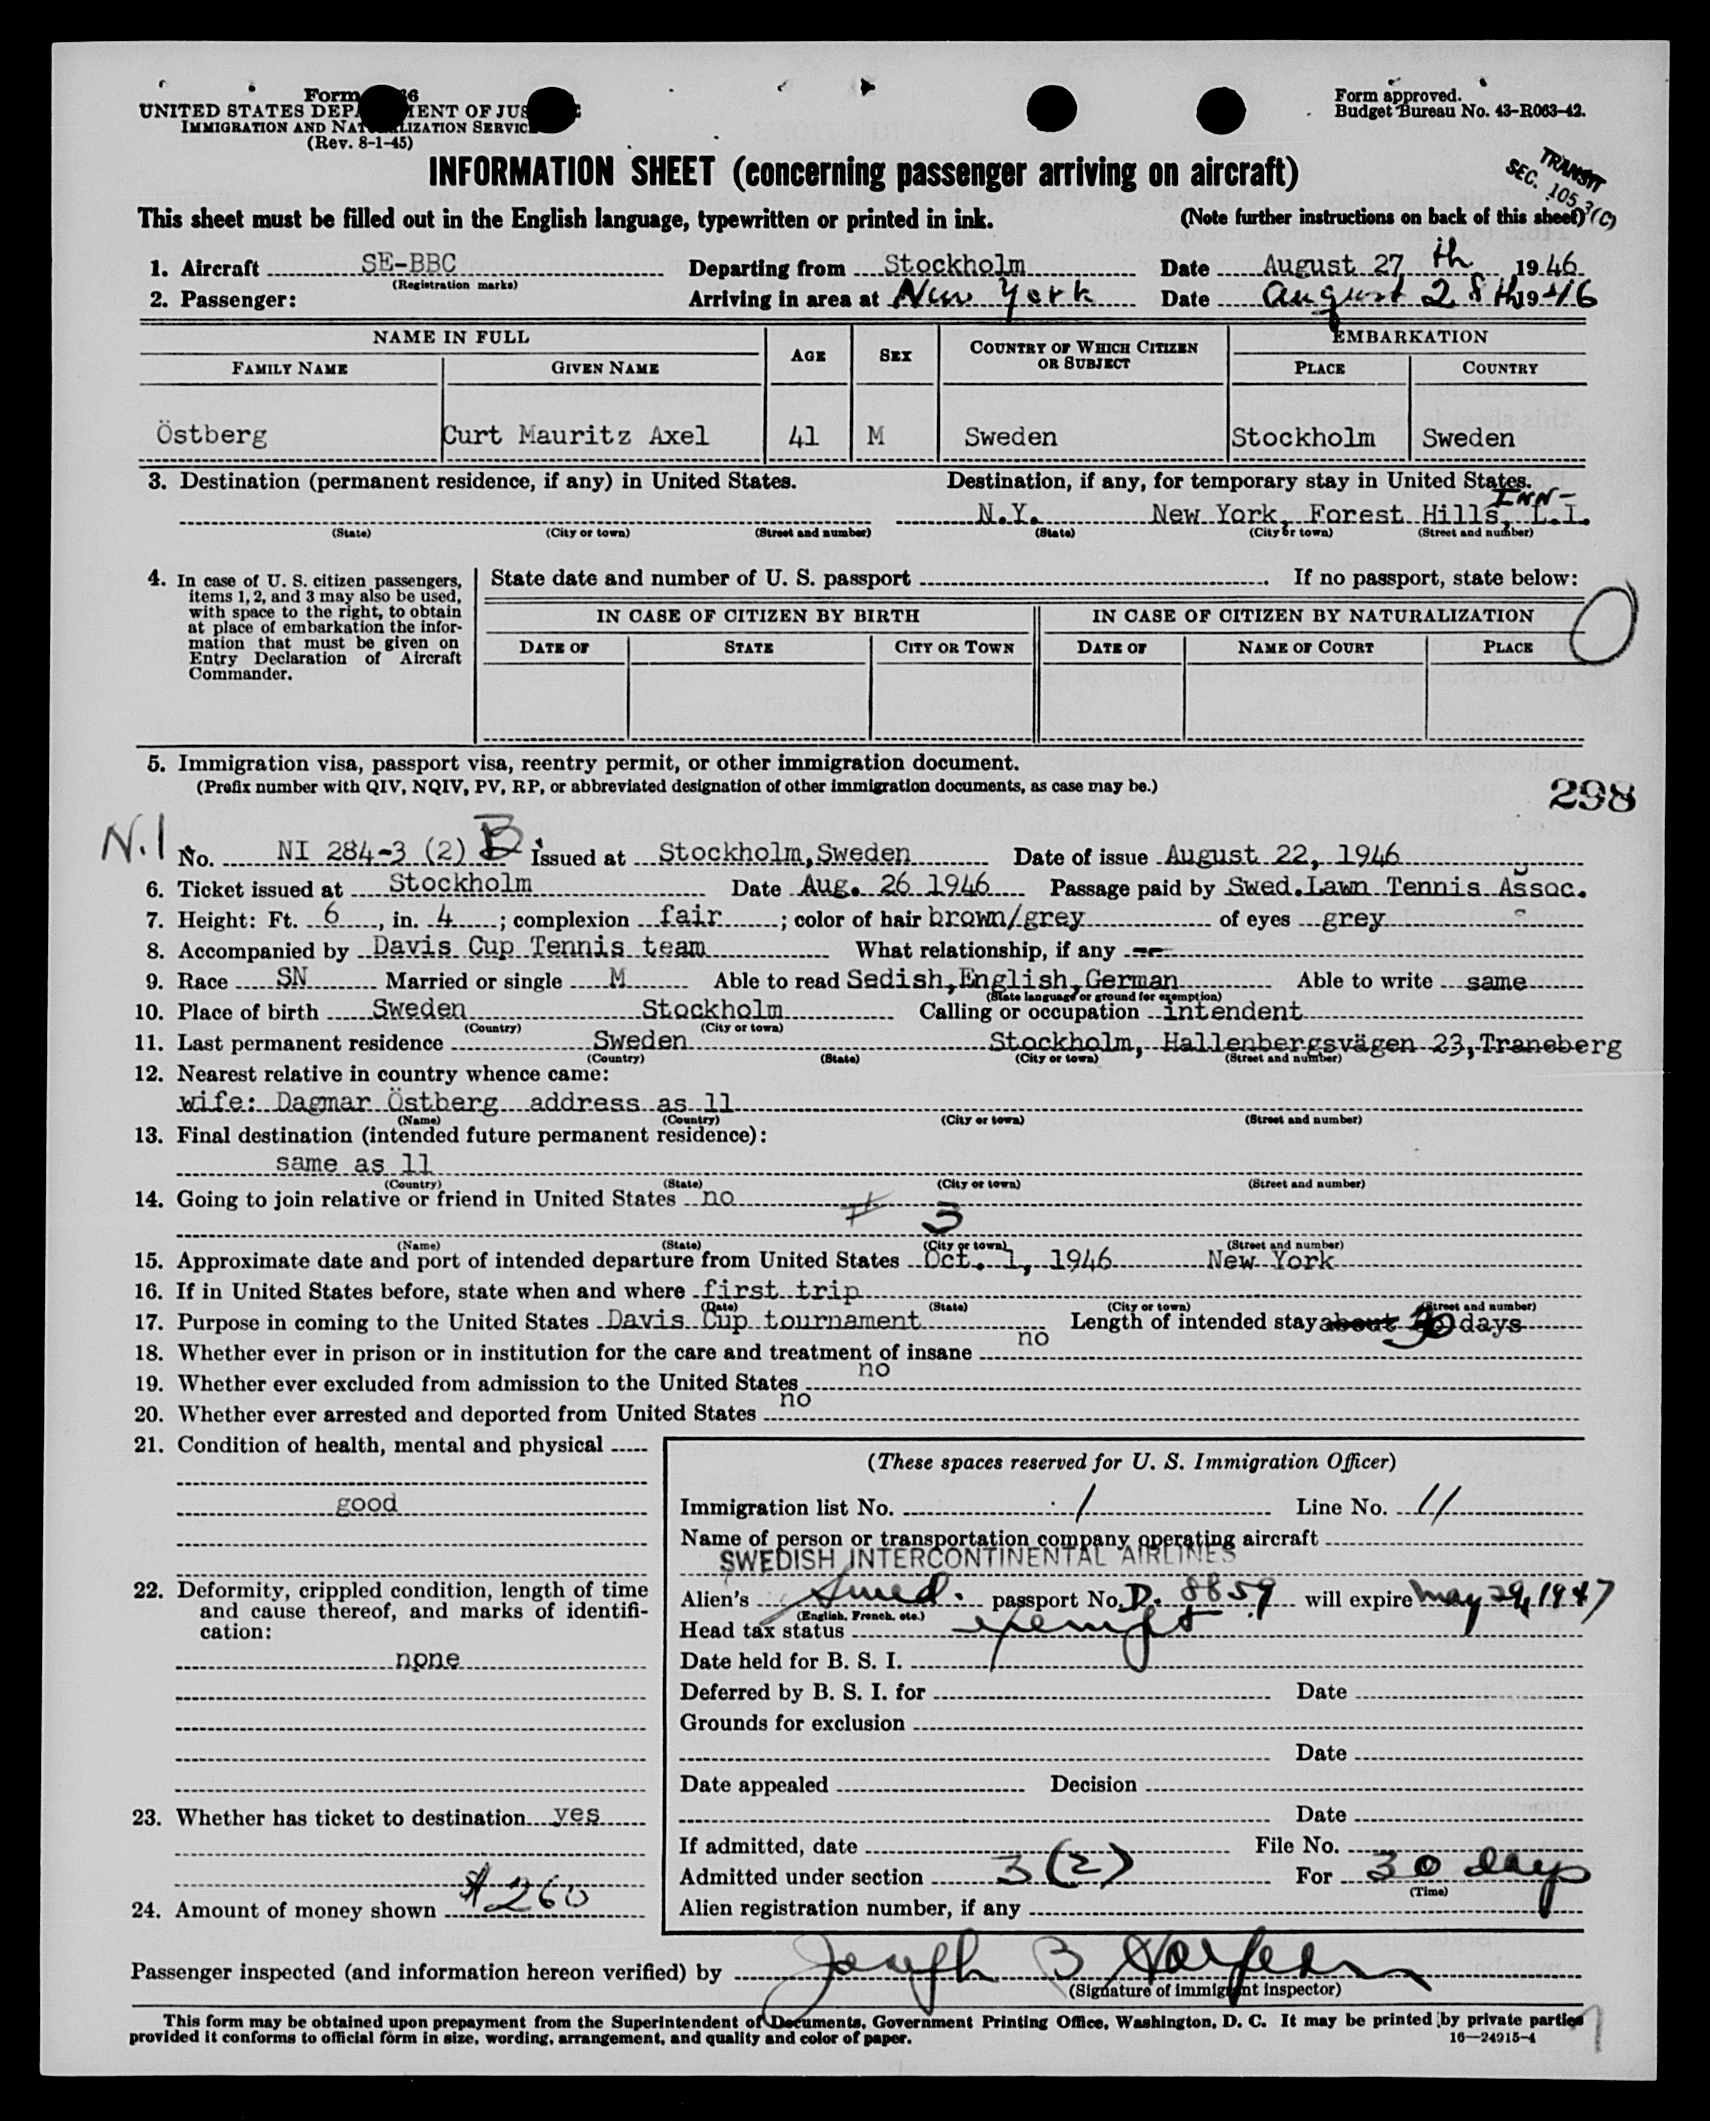 Form 66
UNITED STATES DEPA MENT OF JUS
IMMIGRATION AND NAT LIZATION SERVIC
(Rev. 8-1-45)
Form approved.
Budget Bureau No. 43-R063-42.
INFORMATION SHEET (concerning passenger arriving on aircraft)
TRANSIT
SEC. 105.3(C)
This sheet must be filled out in the English language, typewritten or printed in ink. (Note further instructions on back of this sheet)
1. Aircraft SE-BBC Departing from Stockholm Date August 27 th 1946
(Registration marks)
2. Passenger: Arriving in area at New York Date August 28th 1946
NAME IN FULL AGE SEX COUNTRY OF WHICH CITIZEN OR SUBJECT EMBARKATION
FAMILY NAME GIVEN NAME PLACE COUNTRY
Östberg Curt Mauritz Axel 41 M Sweden Stockholm Sweden
3. Destination (permanent residence, if any) in United States. Destination, if any, for temporary stay in United States.
INN-
N.Y. New York, Forest Hills, L.I.
(State) (City or town) (Street and number) (State) (City or town) (Street and number)
4. In case of U. S. citizen passengers, items 1, 2, and 3 may also be used, with space to the right, to obtain at place of embarkation the information that must be given on Entry Declaration of Aircraft Commander.
State date and number of U. S. passport . If no passport, state below:
IN CASE OF CITIZEN BY BIRTH IN CASE OF CITIZEN BY NATURALIZATION
DATE OF STATE CITY OR TOWN DATE OF NAME OF COURT PLACE
5. Immigration visa, passport visa, reentry permit, or other immigration document.
(Prefix number with QIV, NQIV, PV, RP, or abbreviated designation of other immigration documents, as case may be.)
298
N.1 No. NI 284-3 (2) B Issued at Stockholm, Sweden Date of issue August 22, 1946
6. Ticket issued at Stockholm Date Aug. 26 1946 Passage paid by Swed.Lawn Tennis Assoc.
7. Height: Ft. 6, in. 4; complexion fair; color of hair brown/grey of eyes grey
8. Accompanied by Davis Cup Tennis team What relationship, if any --
9. Race SN Married or single M Able to read Sedish, English, German Able to write same
(State language or ground for exemption)
10. Place of birth Sweden Stockholm Calling or occupation intendent
(Country) (City or town)
11. Last permanent residence Sweden Stockholm, Hallenbergsvägen 23, Traneberg
(Country) (State) (City or town) (Street and number)
12. Nearest relative in country whence came:
wife: Dagmar Östberg address as 11
(Name) (Country) (City or town) (Street and number)
13. Final destination (intended future permanent residence):
same as 11
(Country) (State) (City or town) (Street and number)
14. Going to join relative or friend in United States no
3
(Name) (State) (City or town) (Street and number)
15. Approximate date and port of intended departure from United States Oct. 1, 1946 New York
16. If in United States before, state when and where first trip
(Date) (State) (City or town) (Street and number)
17. Purpose in coming to the United States Davis Cup tournament Length of intended stay about 30 days
18. Whether ever in prison or in institution for the care and treatment of insane no
19. Whether ever excluded from admission to the United States no
20. Whether ever arrested and deported from United States no
21. Condition of health, mental and physical
good
22. Deformity, crippled condition, length of time and cause thereof, and marks of identification:
none
23. Whether has ticket to destination yes
24. Amount of money shown $260
(These spaces reserved for U. S. Immigration Officer)
Immigration list No. 1 Line No. 11
Name of person or transportation company operating aircraft
SWEDISH INTERCONTINENTAL AIRLINES
Alien's Swed. passport No. D. 8859 will expire May 29, 1947
(English, French, etc.)
Head tax status exempt
Date held for B. S. I.
Deferred by B. S. I. for Date
Grounds for exclusion
Date
Date appealed Decision
Date
If admitted, date File No.
Admitted under section 3(2) For 30 days
(Time)
Alien registration number, if any
Passenger inspected (and information hereon verified) by Joseph B
(Signature of immigrant inspector)
This form may be obtained upon prepayment from the Superintendent of Documents, Government Printing Office, Washington, D. C. It may be printed by private parties
provided it conforms to official form in size, wording, arrangement, and quality and color of paper. 16—24915-4